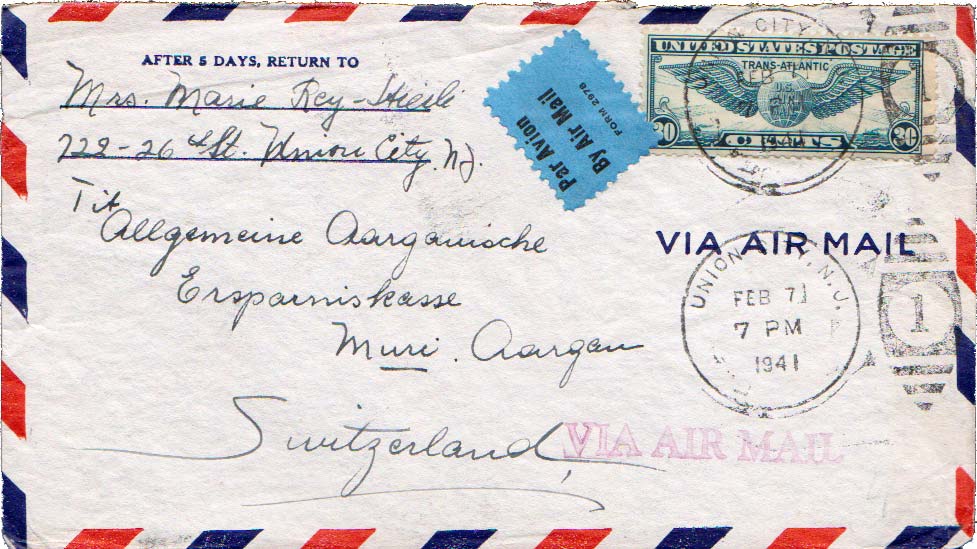 AFTER 5 DAYS, RETURN TO
Mrs. Marie Rey-Stierli
722-26th St. Union City, NJ.
Tit
Allgemeine Aargauische
Ersparniskasse
Muri. Aargau
Switzerland
Par Avion
By Air Mail
FORM 2978
UNITED STATES POSTAGE
TRANS-ATLANTIC
U.S.
30 CENTS 30
CITY
FEB
VIA AIR MAIL
UNION CITY, N.J.
FEB 7
7 PM
1941
1
VIA AIR MAIL